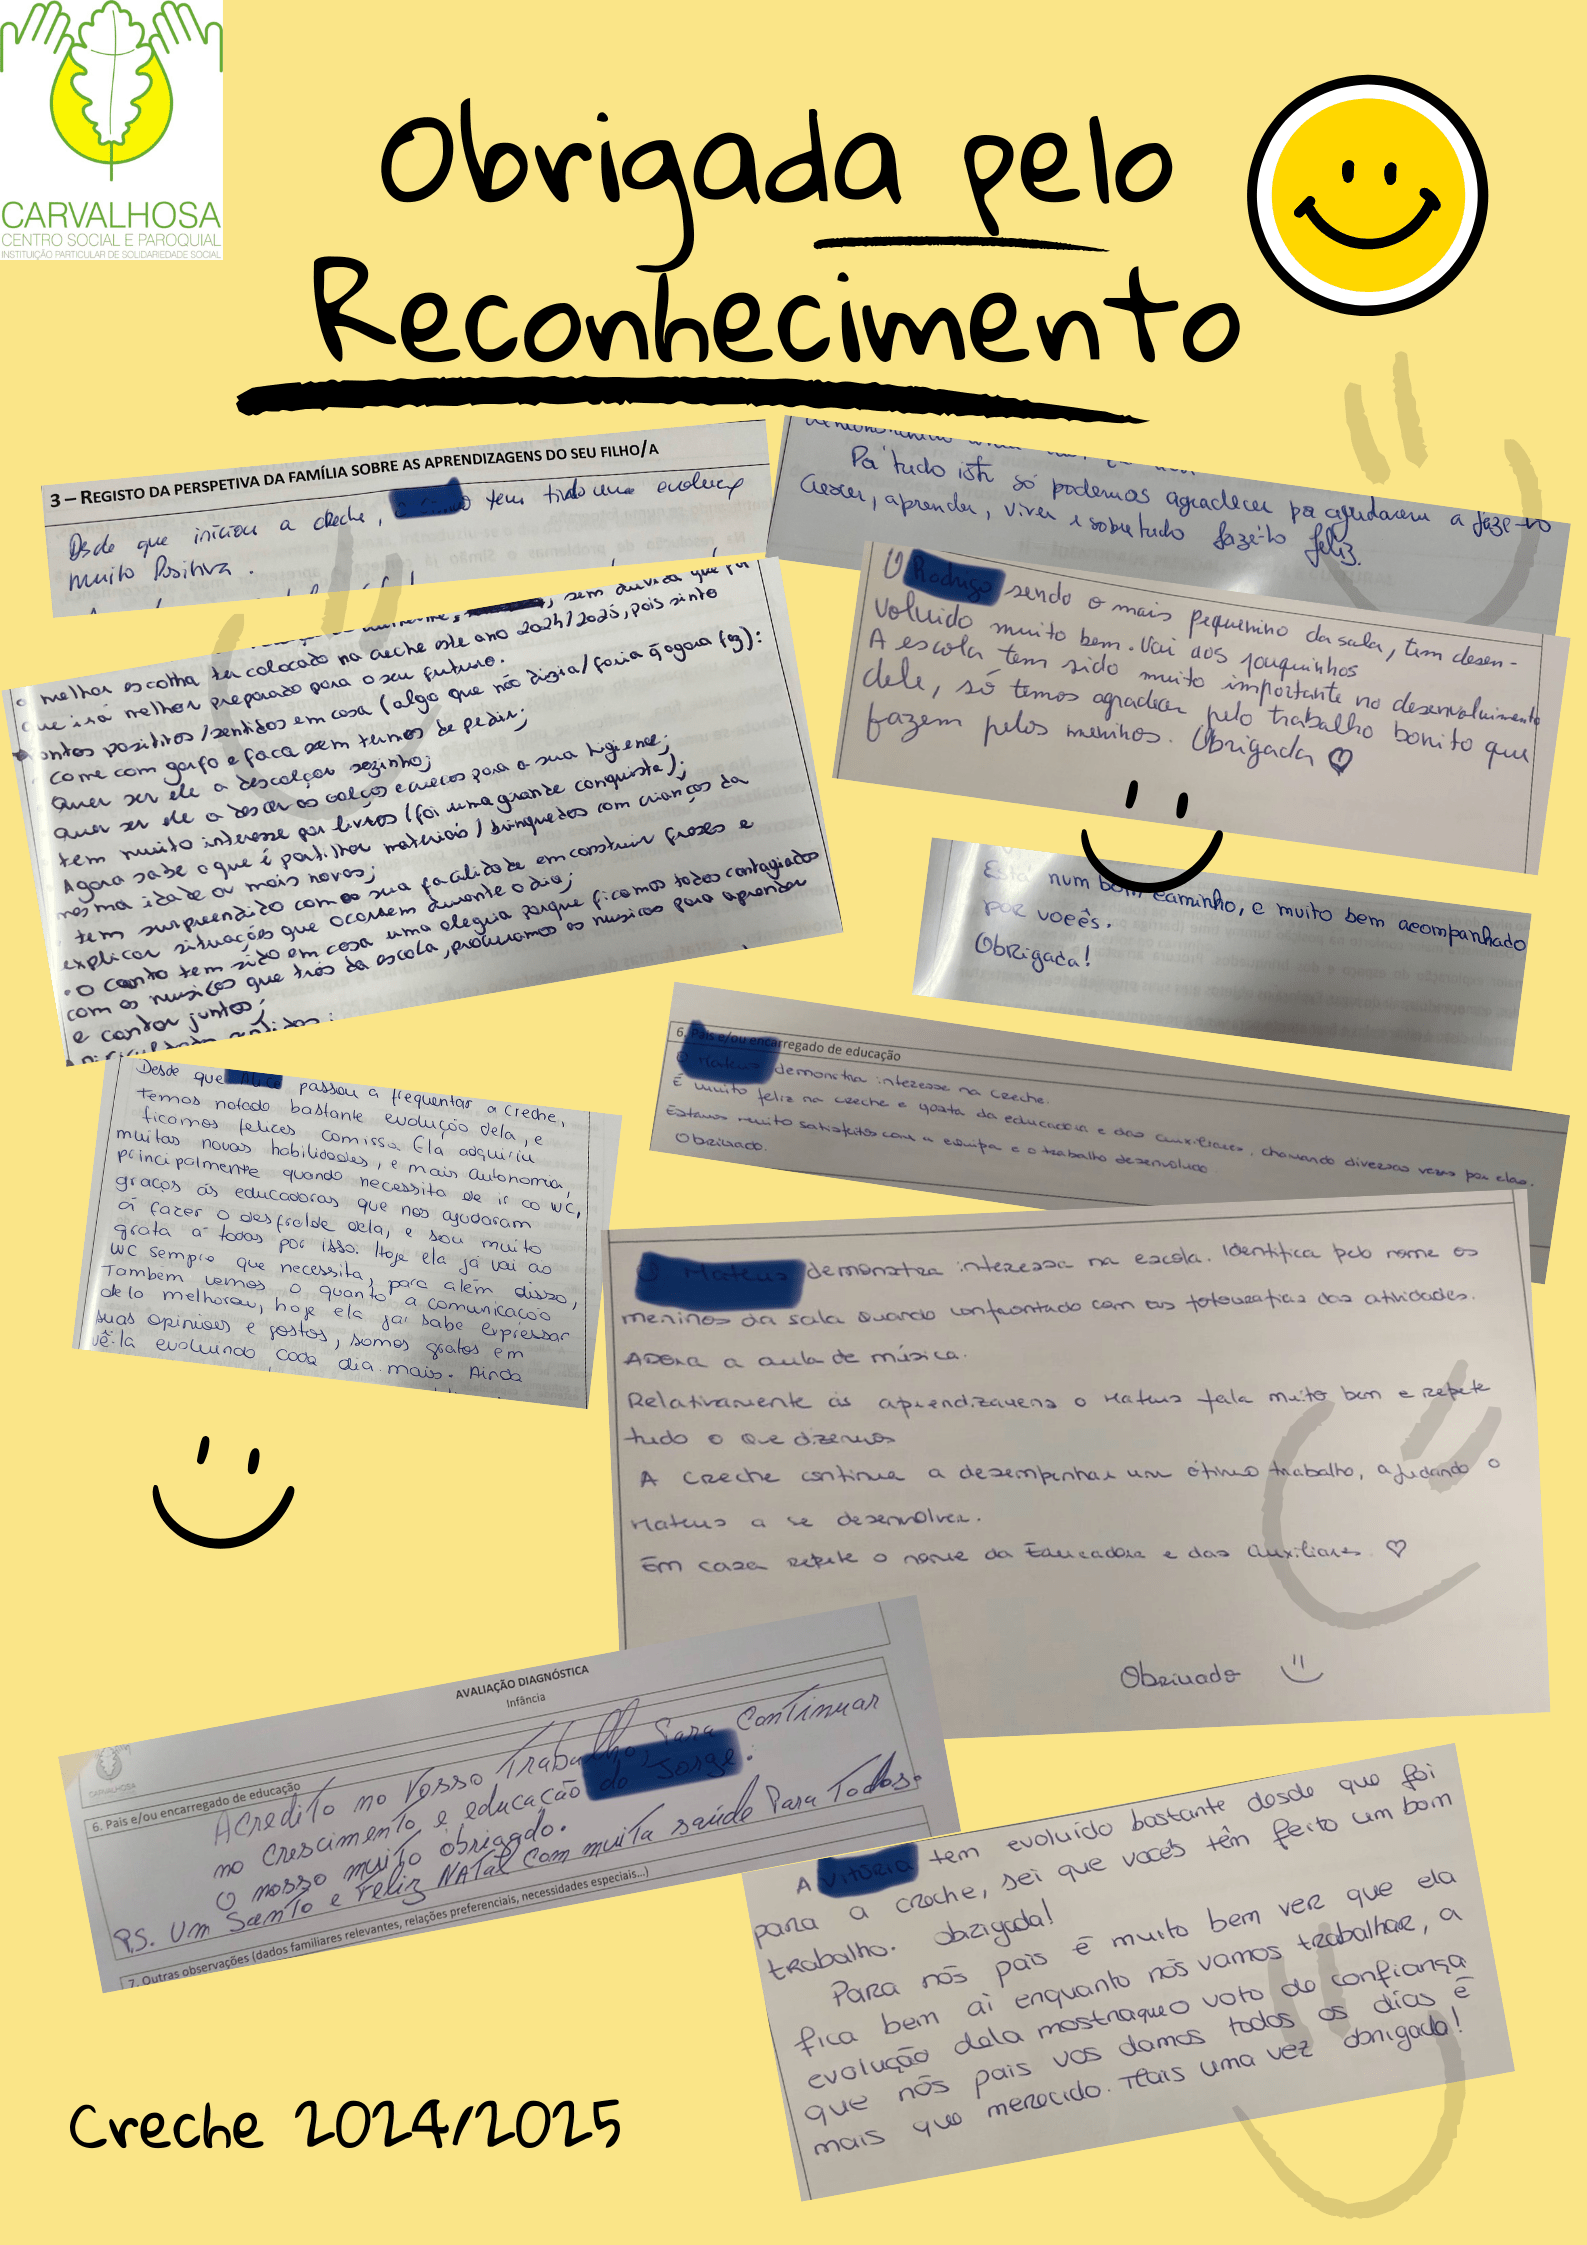 CARVALHOSA
CENTRO SOCIAL E PAROQUIAL
INSTITUIÇÃO PARTICULAR DE SOLIDARIEDADE SOCIAL
Obrigada pelo
Reconhecimento
3 – REGISTO DA PERSPETIVA DA FAMÍLIA SOBRE AS APRENDIZAGENS DO SEU FILHO/A
Desde que iniciou a creche, tem tido uma evolução
muito Positiva.
Por tudo isto só podemos agradecer por ajudarem a fazê-lo
crescer, aprender, viver e sobretudo fazê-lo feliz.
O sendo o mais pequenino da sala, tem desen-
volvido muito bem. Vai aos pouquinhos
A escola tem sido muito importante no desenvolvimento
dele, só temos agradecer pelo trabalho bonito que
fazem pelos meninhos. Obrigada ♡
sem dúvida que foi
a melhor escolha ter colocado na creche este ano 2024/2025, pois sinto
que irá melhor preparado para o seu futuro.
Pontos positivos/sentidos em casa (algo que não dizia/fazia q agora faz):
come com garfo e faca sem termos de pedir;
Quer ser ele a descalçar sozinho;
Quer ser ele a descer as calças e cuecas para a sua higiene;
tem muito interesse por livros (foi uma grande conquista);
Agora sabe o que é partilhar materiais/brinquedos com crianças da
mesma idade ou mais novos;
tem surpreendido com a sua facilidade em construir frases e
explicar situações que ocorrem durante o dia;
• O canto tem sido em casa uma alegria porque ficamos todos contagiados
com as musicas que trás da escola, procuramos as musicas para aprender
e cantar juntos;
Está num bom caminho, e muito bem acompanhado
por vocês.
Obrigada!
6. Pais e/ou encarregado de educação
demonstra interesse na creche.
É muito feliz na creche e gosta da educadora e das auxiliares, chamando diversas vezes por elas.
Estamos muito satisfeitos com a equipa e o trabalho desenvolvido.
Obrigado.
Desde que passou a frequentar a creche,
temos notado bastante evolução dela, e
ficamos felices com isso. Ela adquiriu
muitas novas habilidades, e mais autonomia,
principalmente quando necessita de ir ao WC,
graças ás educadoras que nos ajudaram
á fazer o desfralde dela, e sou muito
grata a todas por isso. Hoje ela já vai ao
WC sempre que necessita, para além disso,
Também vemos o quanto a comunicação
dela melhorou, hoje ela já sabe expressar
suas opiniões e gostos, somos gratos em
vê-la evoluindo cada dia mais. Ainda
demonstra interessa na escola. Identifica pelo nome os
meninos da sala quando confrontado com as fotografias das atividades.
Adora a aula de música.
Relativamente ás aprendizagens o Mateus fala muito bem e repete
tudo o que dizemos
A creche continua a desempenhar um ótimo trabalho, ajudando o
Mateus a se desenvolver.
Em casa repete o nome da Educadora e das auxiliares ♡
Obrigado
AVALIAÇÃO DIAGNÓSTICA
Infância
CARVALHOSA
6. Pais e/ou encarregado de educação
Acredito no Vosso Trabalho, Para Continuar
no Crescimento, e educação do Jorge.
O nosso muito obrigado.
P.S. Um Santo e Feliz NATal Com muita saúde Para Todos.
7. Outras observações (dados familiares relevantes, relações preferenciais, necessidades especiais...)
A Vitória tem evoluído bastante desde que foi
para a creche, sei que vocês têm feito um bom
trabalho. Obrigada!
Para nós pais é muito bem ver que ela
fica bem ai enquanto nós vamos trabalhar, a
evolução dela mostra que o voto de confiança
que nós pais vos damos todos os dias é
mais que merecido. Mais uma vez obrigada!
Creche 2024/2025